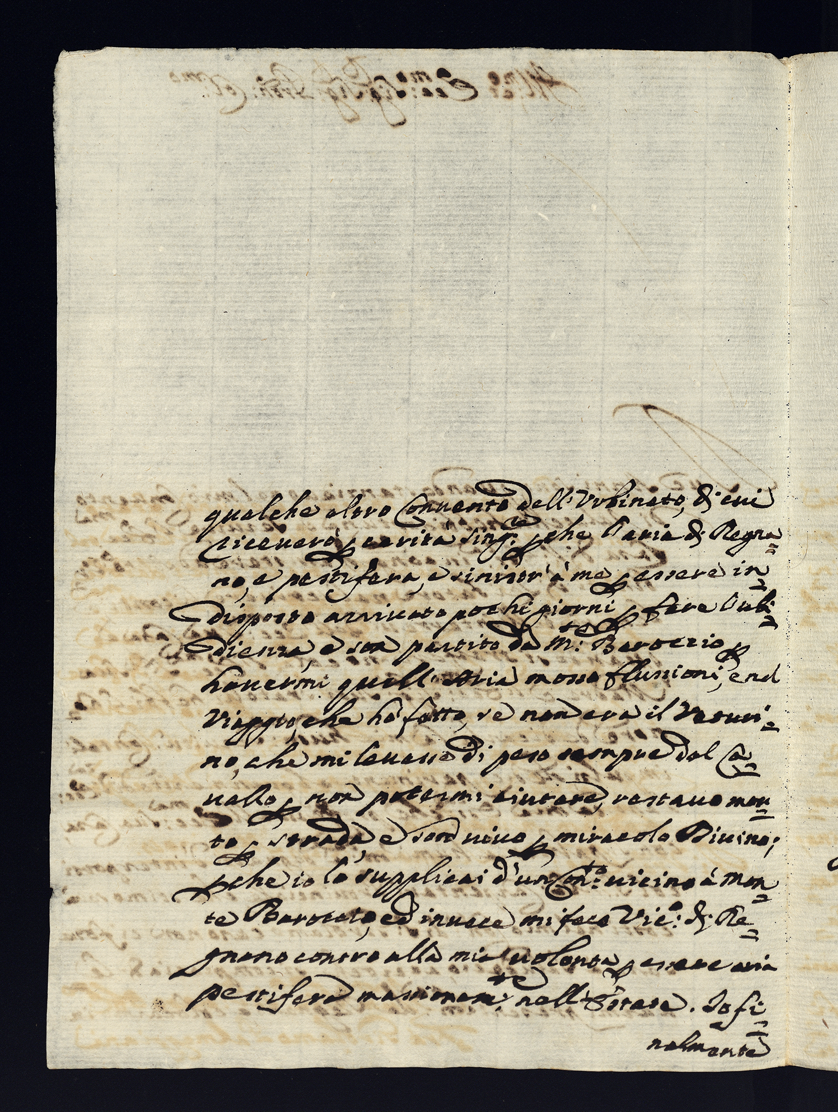 qualche altro Convento dell'Urbinato, di cui
riceverò p carità sing.re p che l'aria di Regna=
no, e pestifera, e sinistr' à me p essere in=
disposto arrivato pochi giorni p fare l'ubi=
dienza e son partito da M.te Baroccio p
havermi quell'Aria mosso flussioni, e nel
Viaggio che hò fatto, se non era il Veturi=
no, che mi levasse di peso sempre dal Ca=
vallo p non potermi aiutare, restavo mor=
to p strada e son vivo p miracolo Divino;
p che io lo supplicai d'un Con.to vicino à Mon=
te Baroccio, ed invece mi fece Vic.o di Re=
gnano contro alla mia volontà p essere aria
pestifera massimam.te nell'Estate. Io fi=
nalmente